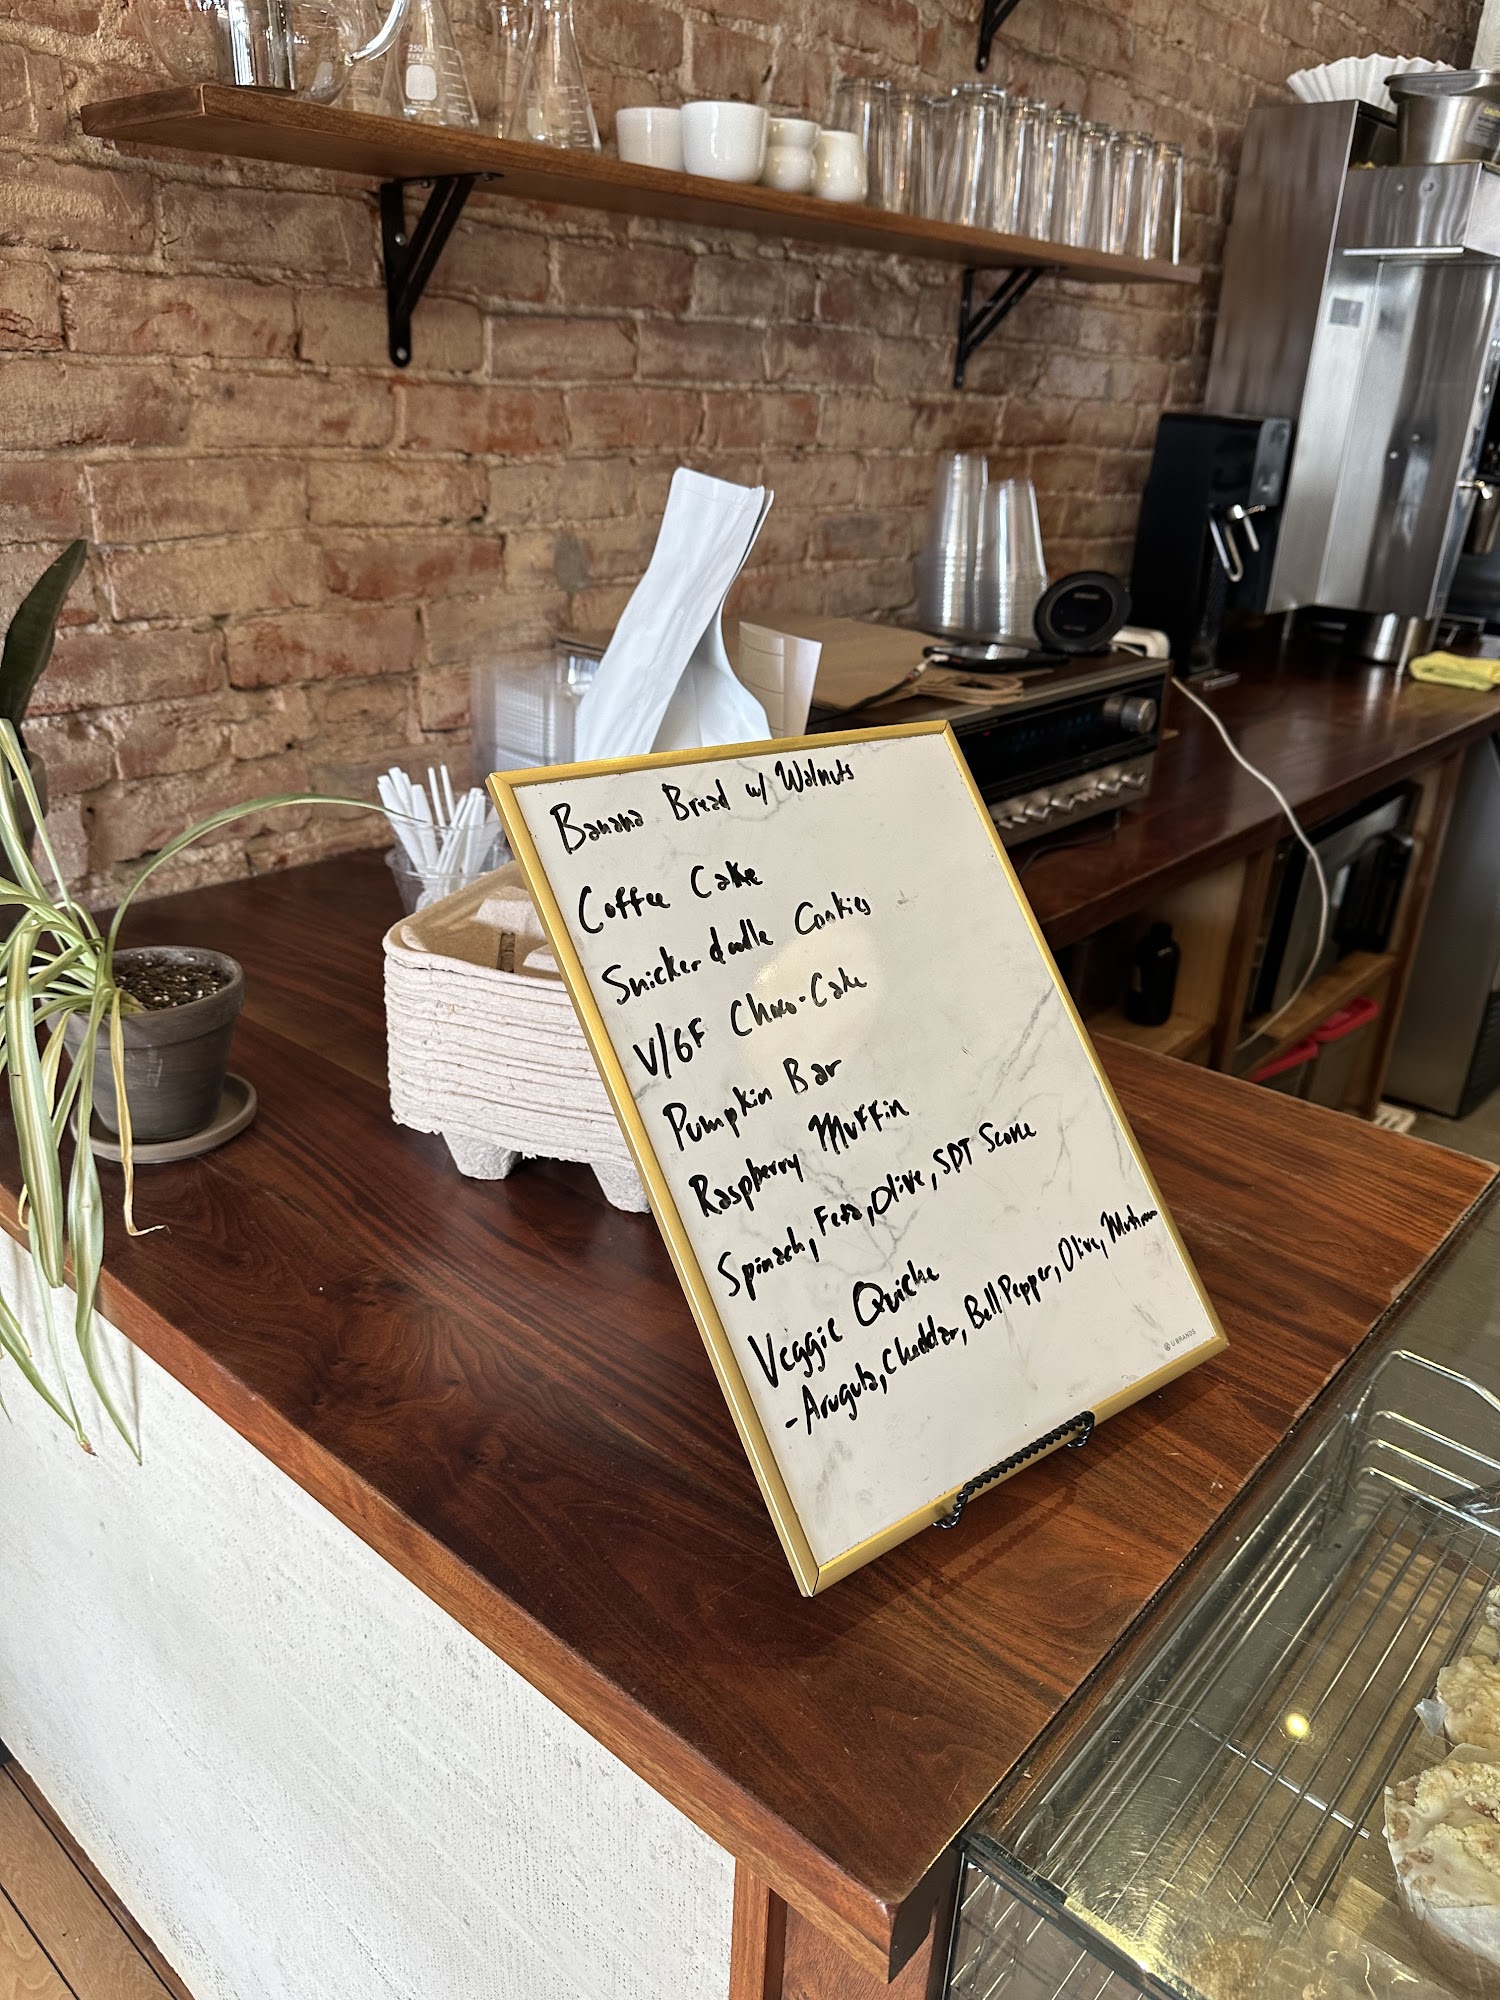 Banana Bread w/ Walnuts
Coffee Cake
Snickerdoodle Cookies
V/GF Choco-Cake
Pumpkin Bar
Raspberry Muffin
Spinach, Feta, Olive, SDT Scone
Veggie Quiche
-Arugula, Cheddar, Bell Pepper, Olive, Mushroom
U BRANDS
250